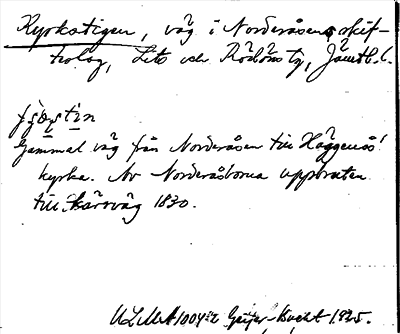 Kyrkstigen, väg i Norderåsens skif-
teslag, Lits och Rödöns tg, Jämtl. l.
Gammal väg från Norderåsen till Häggenås
kyrka. Av Norderåsborna uppbruten
till kärrväg 1830.
ULMA 1004:2 Geijer-Bucht 1925.